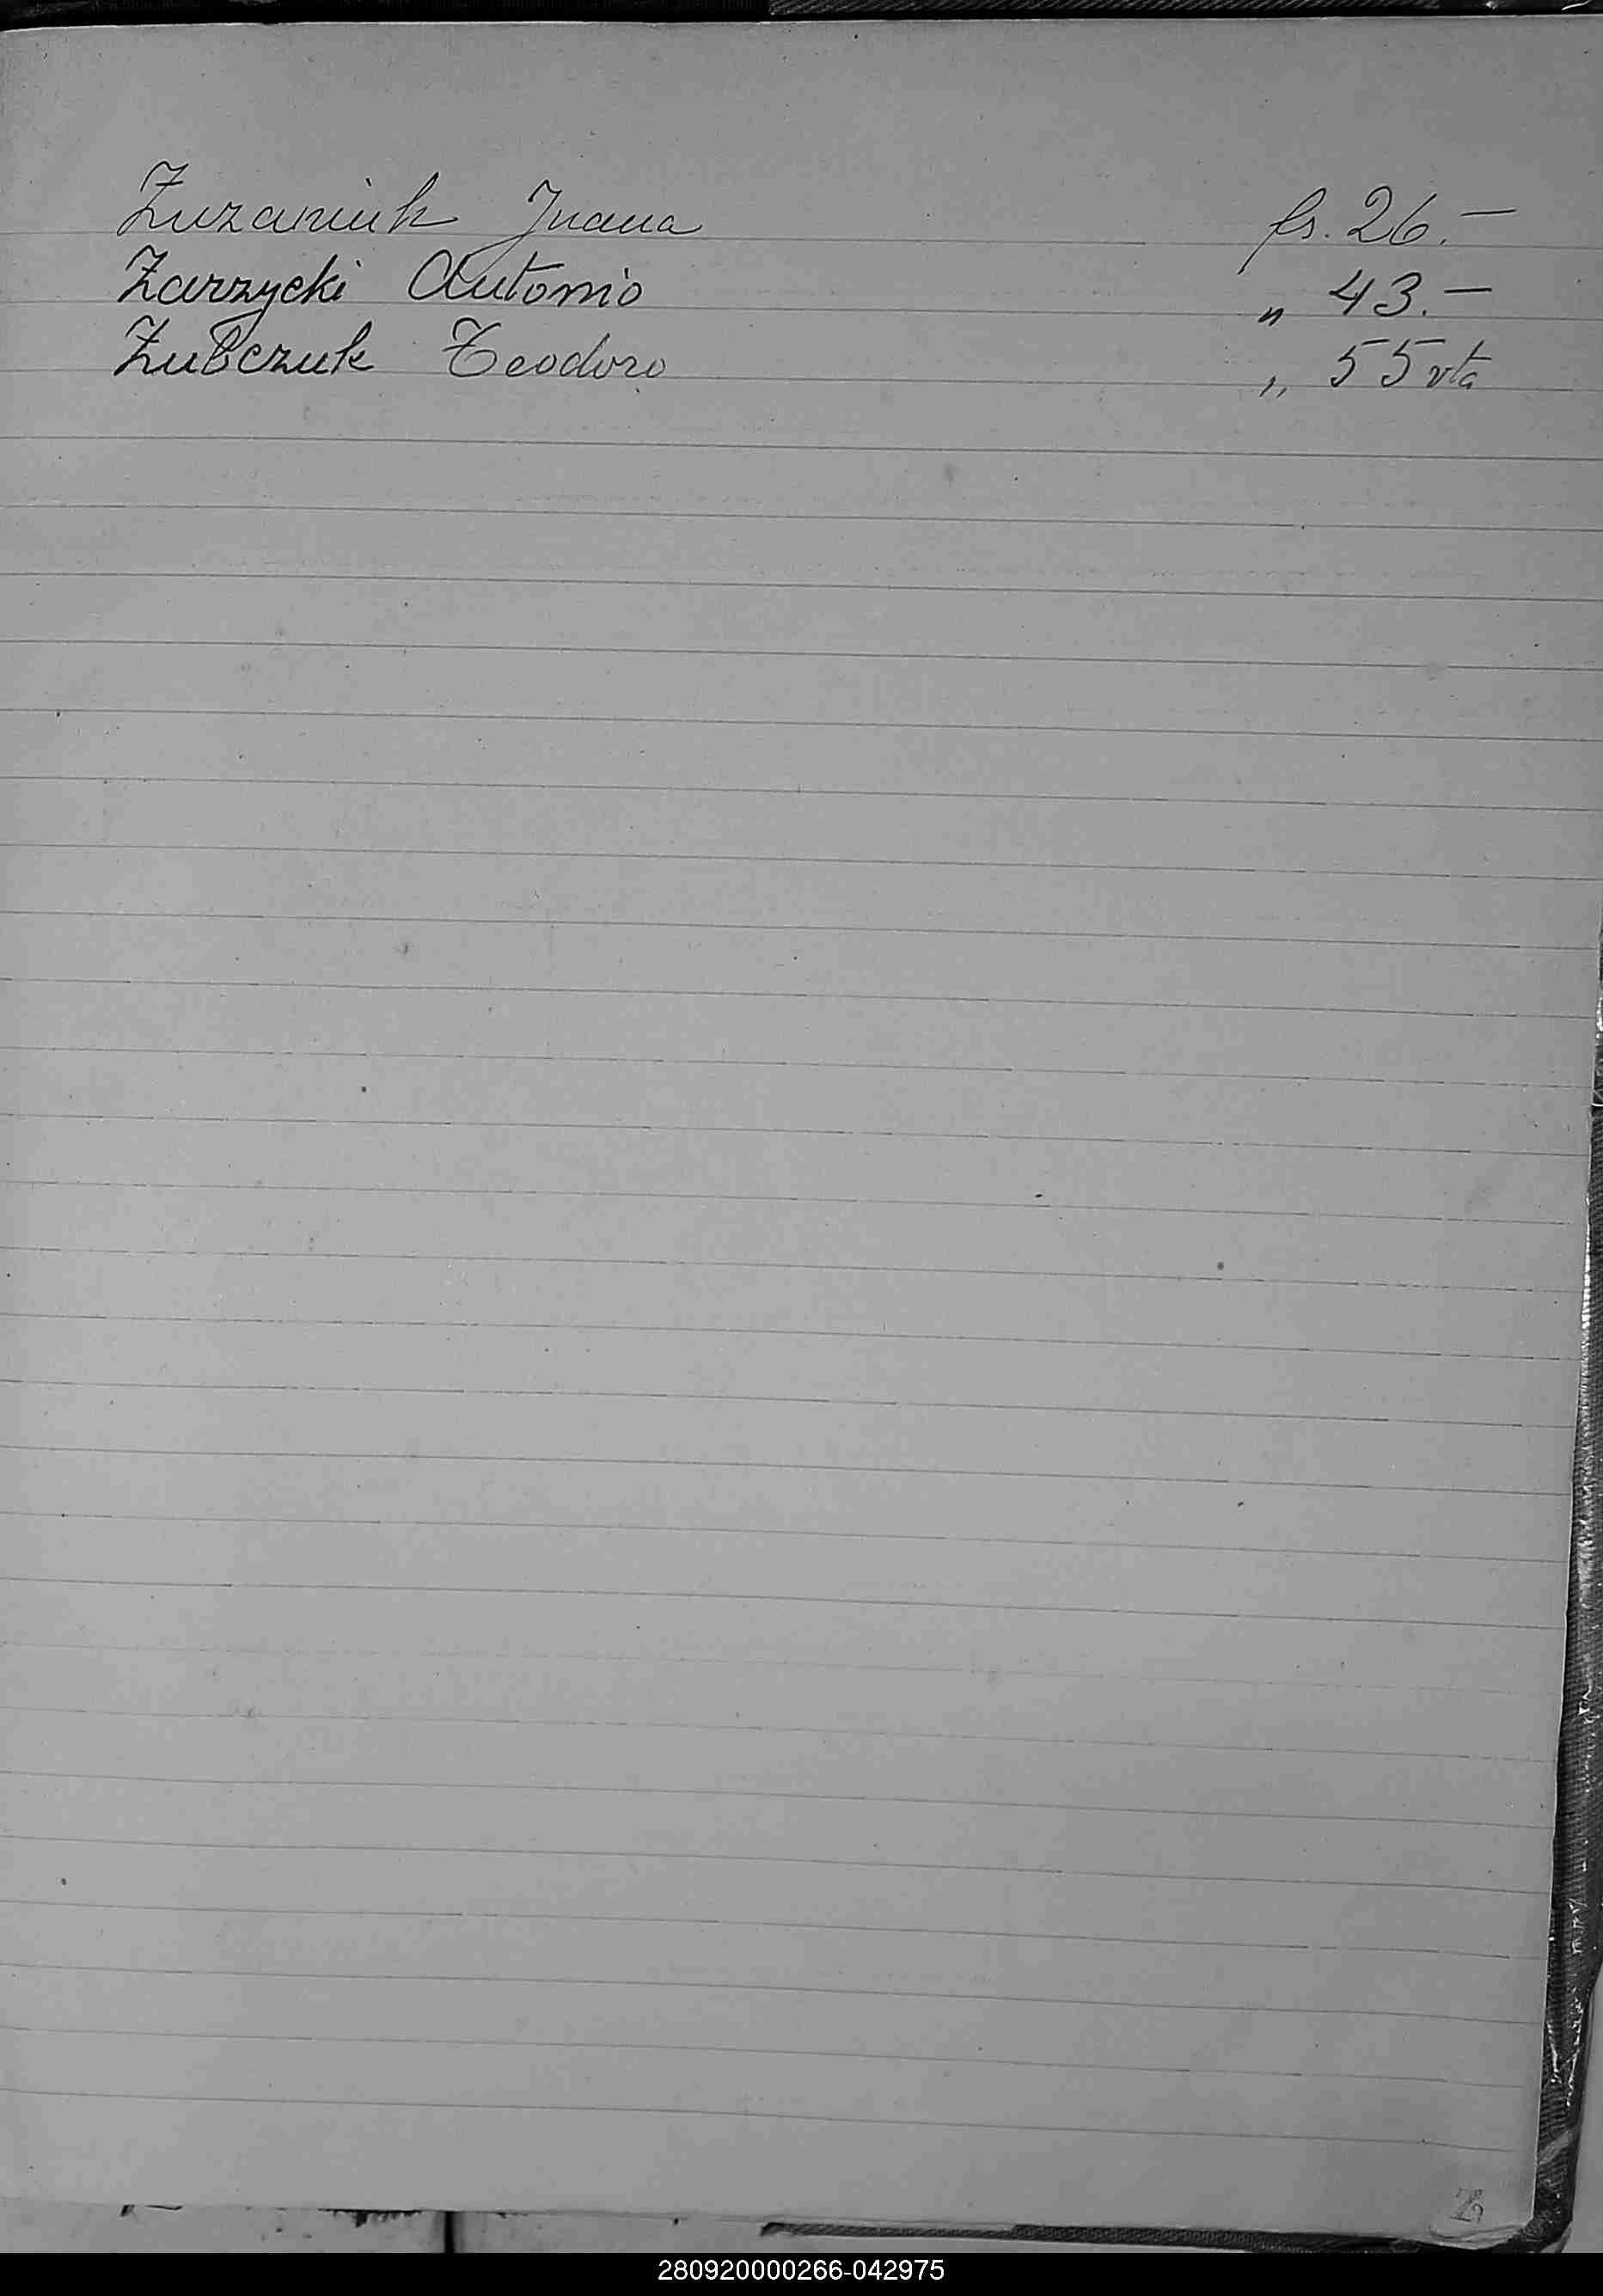 Zuzaniuk Juana fs. 26.—
Zarzycki Antonio „ 43.—
Zubczuk Teodoro „ 55 vta
Z
280920000266-042975